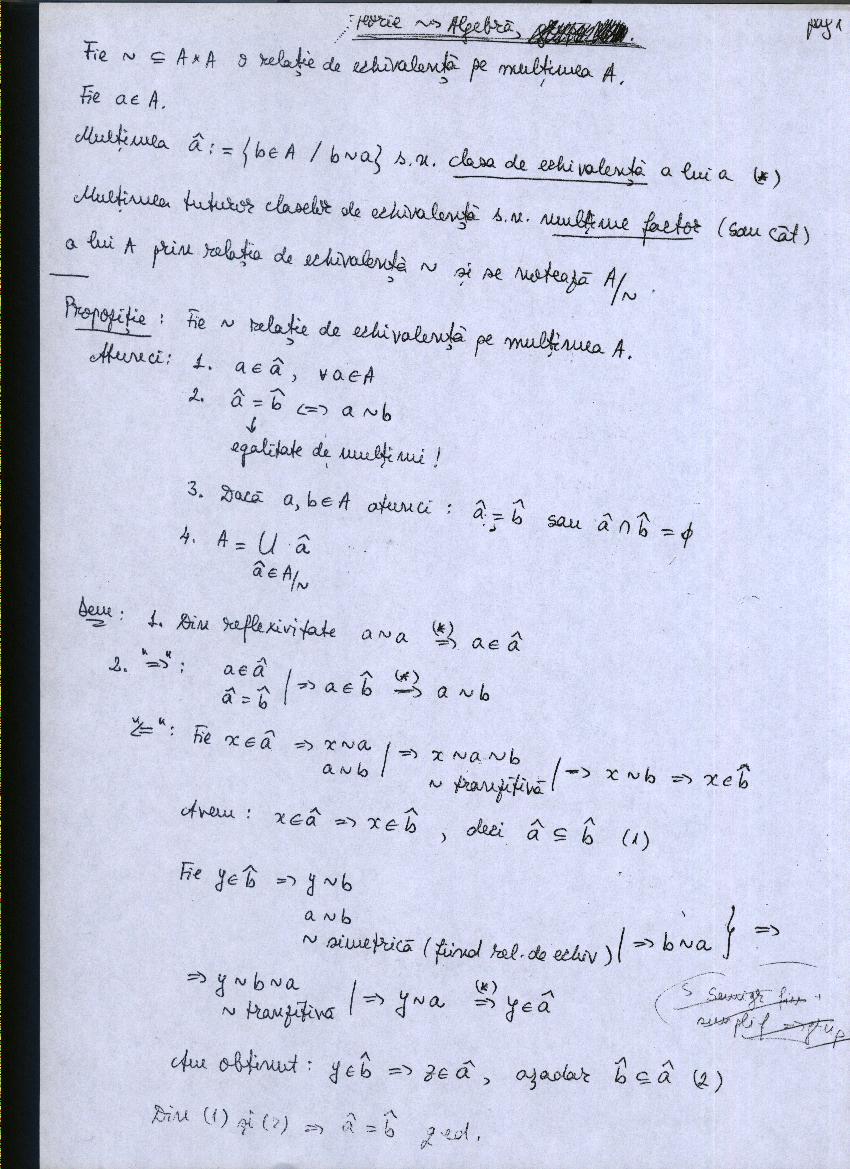 Teorie ~> Algebră,
pag 1
Fie ~ ⊆ A×A o relație de echivalență pe mulțimea A.
Fie a∈A.
Mulțimea â := {b∈A / b~a} s.n. clasa de echivalență a lui a (*)
Mulțimea tuturor claselor de echivalență s.n. mulțime factor (sau cât)
a lui A prin relația de echivalență ~ și se notează A/~.
Propoziție: Fie ~ relație de echivalență pe mulțimea A.
Atunci: 1. a∈â, ∀a∈A
2. â = b̂ <=> a~b
↓
egalitate de mulțimi!
3. Dacă a,b∈A atunci: â = b̂ sau â∩b̂ = ϕ
4. A = ∪ â
â∈A/~
Dem: 1. Din reflexivitate a~a (*)=> a∈â
2. "=>": a∈â
â = b̂ | => a∈b̂ (*)=> a~b
"<=": Fie x∈â => x~a
a~b | => x~a~b
~ tranzitivă | => x~b => x∈b̂
Avem: x∈â => x∈b̂, deci â⊆b̂ (1)
Fie y∈b̂ => y~b
a~b
~ simetrică (fiind rel. de echiv) | => b~a } =>
=> y~b~a
~ tranzitivă | => y~a (*)=> y∈â
Am obținut: y∈b̂ => z∈â, așadar b̂⊆â (2)
Din (1) și (2) => â = b̂ qed.